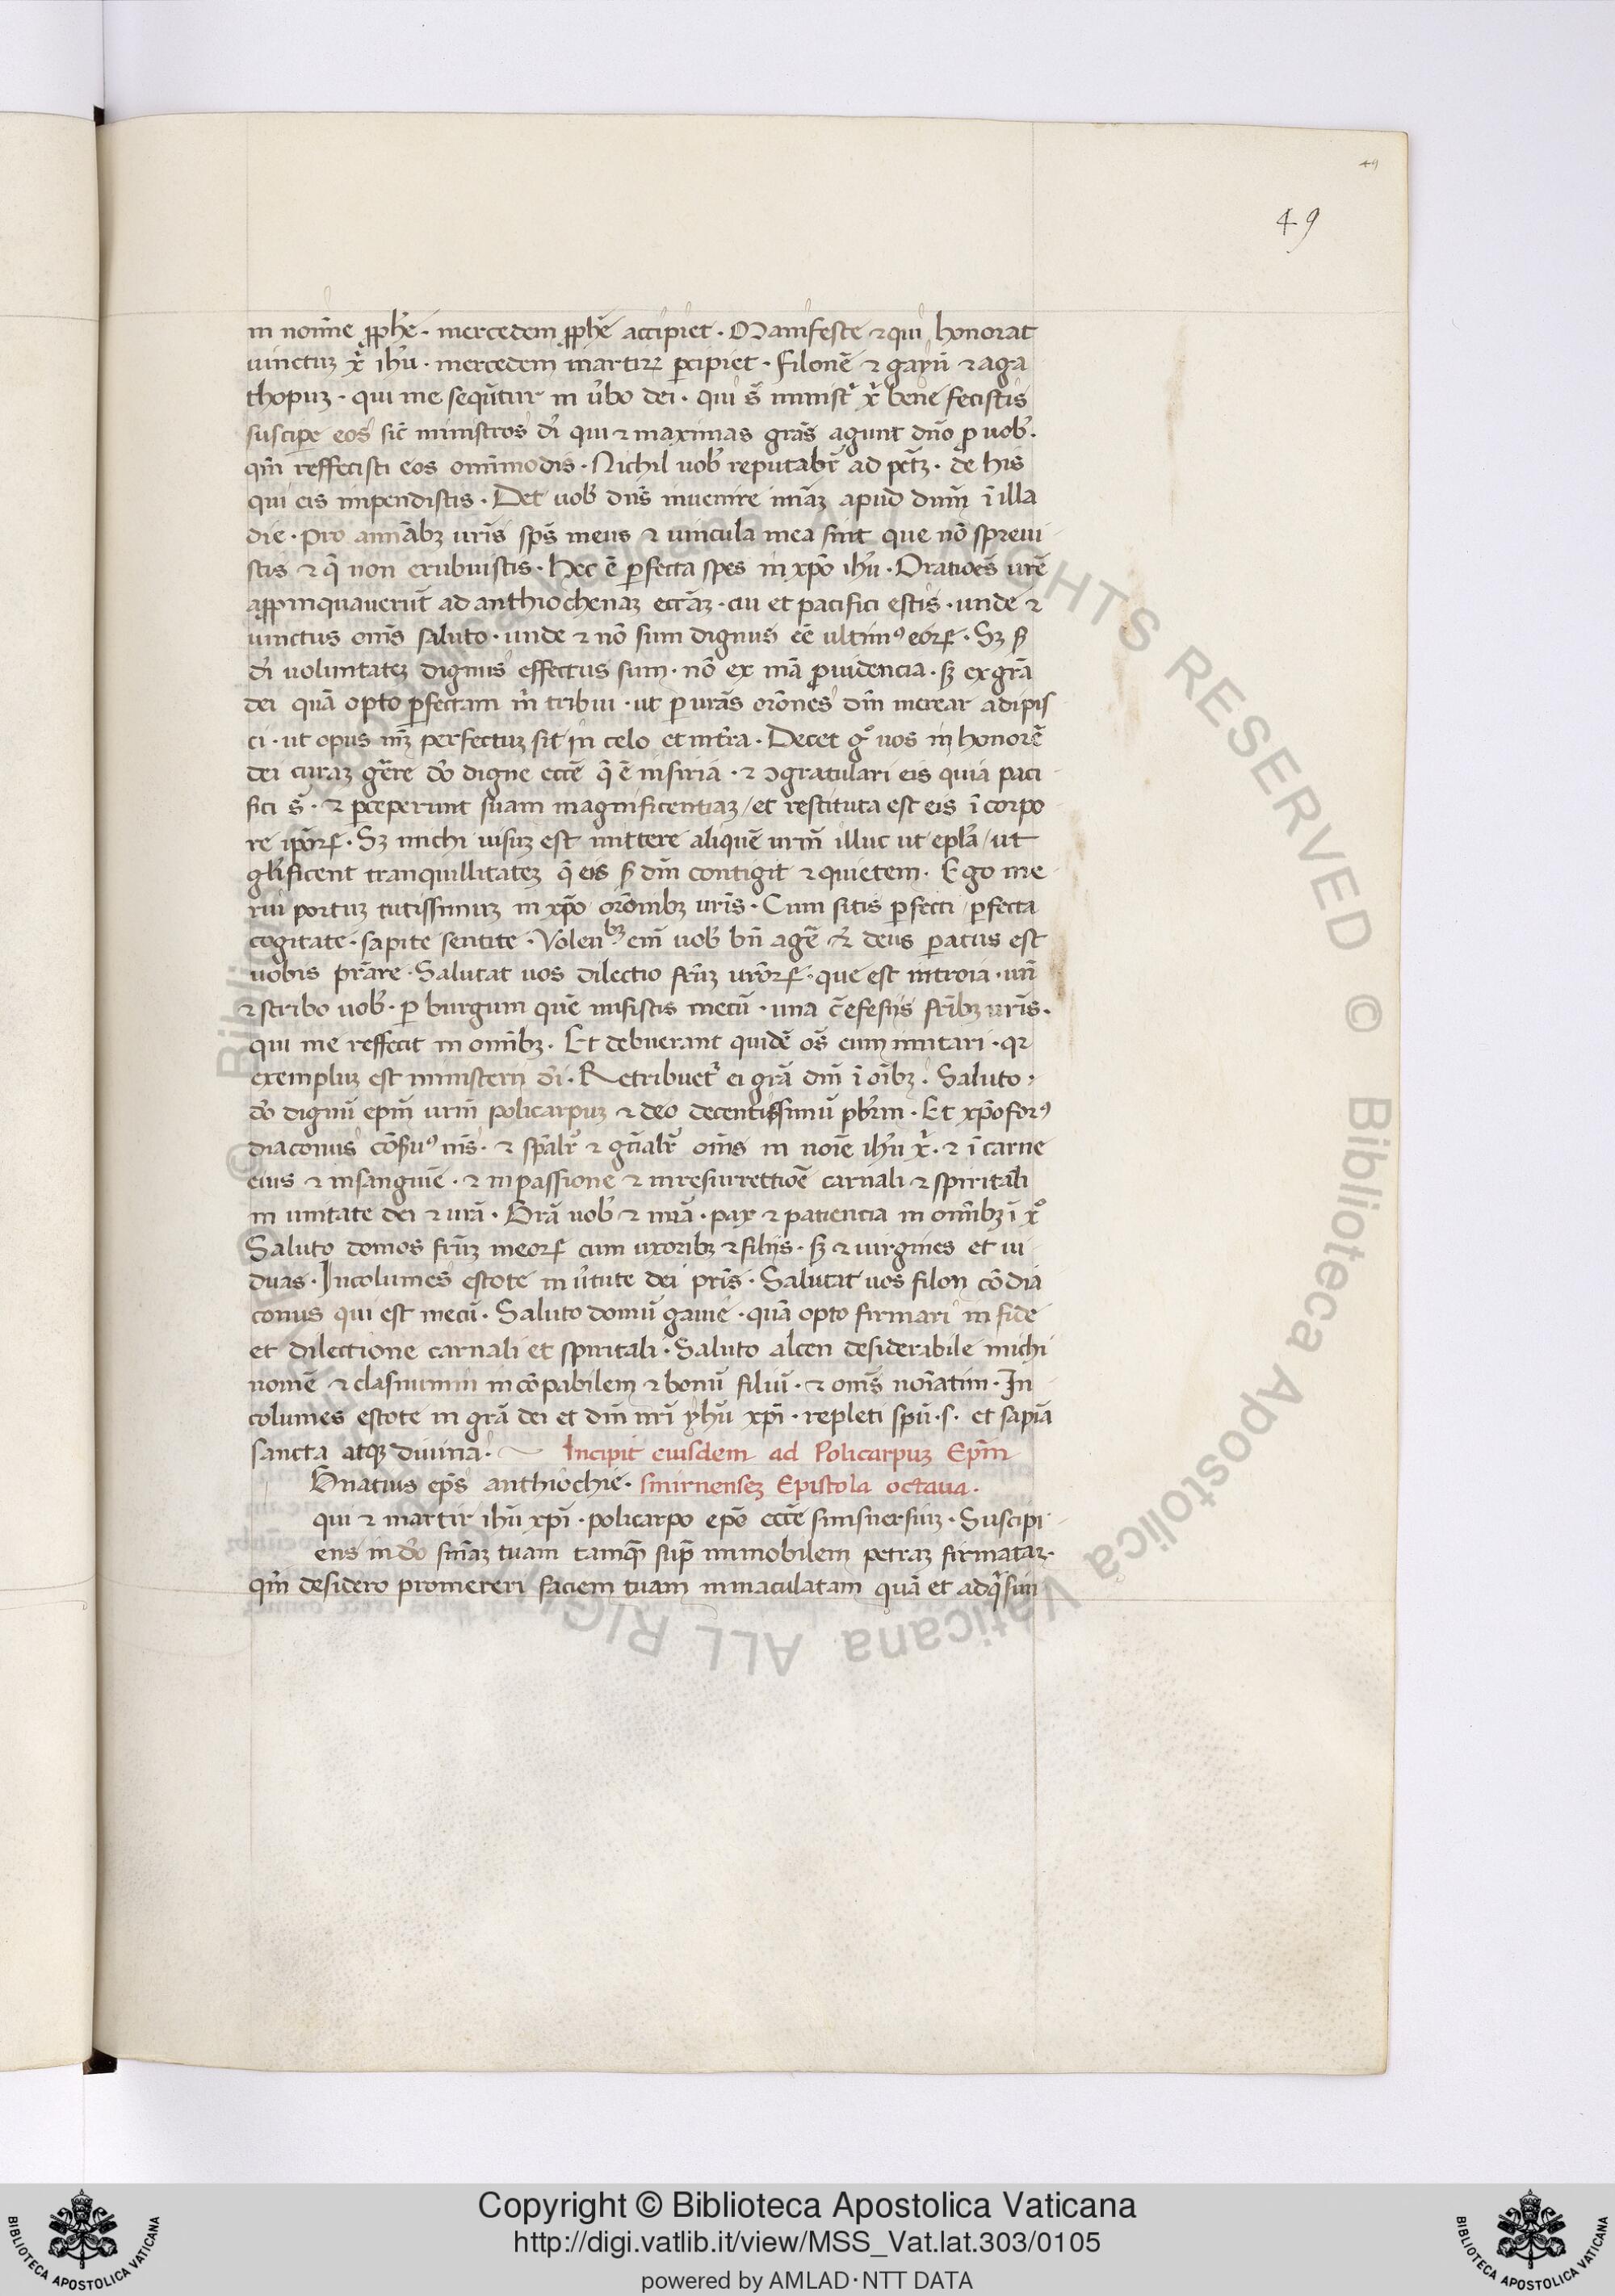 49
49
in noīne ꝓphē · mercedem ꝓphē accipiet · Manifeste ⁊ qui honorat
uinctuꝫ xp̄i ihū · mercedem martirꝫ ꝑcipiet · filonē ⁊ gayū ⁊ aga
thopuꝫ · qui me sequūtur in ūbo dei · qui s̄ minist̄ xp̄i bene fecistis
suscipe eos sic̄ ministros dī qui ⁊ maximas grās agunt dño ꝓ uob̄ ·
qm̄ reffecisti eos omīmodis · Nichil uob̄ reputabr̄ ad pctꝫ · de his
qui eis impendistis · Det uob̄ dns̄ inuenire miāꝫ apud dnm̄ ī illa
die · pro animābꝫ uris̄ sps̄ meus ⁊ uincula mea sint que nō spreui
stis ⁊ q̄ non erubuistis · hec ē ꝑfecta spes in xpō ihū · Oratiōes urē
aꝓpinquauerūt ad anthiochenaꝫ eccāꝫ · cui et pacifici estis · unde ⁊
uinctus om̄s saluto · unde ⁊ nō sum dignus eē ultimꝰ eoꝝ · Sꝫ ẜ
dī uoluntateꝫ dignus effectus sum · nō ex mā ꝓuidencia · sꝫ ex grā
dei quā opto ꝑfectam m̄ tribui · ut ꝑ urās orōnes dīn merear adipis
ci · ut opus mꝫ perfectuꝫ sit in celo et in tr̄ra · Decet gͦ uos in honorē
dei curaꝫ gerē dō digne eccē q̄ ē in siria · ⁊ ꝯgratulari eis quia paci
fici s̄ · ⁊ ꝑceperunt suam magnificentiaꝫ / et restituta est eis ī corpo
re ipōꝝ · Sꝫ michi uisuꝫ est mittere aliquē urm̄ illuc ut epl̄a / ut
gl̄ificent tranquillitateꝫ q̄ eis ẜ dīn contigit ⁊ quietem · Ego me
rui portuꝫ tutissimuꝫ in xpō orōnibꝫ uris̄ · Cum sitis ꝑfecti / ꝑfecta
cogitate · sapite sentite · Volenᵇꝫ em̄ uob̄ bn̄ agē ⁊ deus ꝑatus est
uobis prāre · Salutat uos dilectio frūꝫ urōꝝ · que est in troia · un̄
⁊ scribo uob̄ · ꝑ burgum quē misistis mecū · una c̄ efesiis frībꝫ uris̄ ·
qui me reffecit in omībꝫ · Et debuerant quidē os̄ eum imitari · qꝛ
exempluꝫ est ministerii dī · Retribuet̄ ei grā dīn ī oībꝫ · Saluto
dō dignū epm̄ urm̄ policarpuꝫ ⁊ deo decentissimū pbr̄m · Et xpōforꝰ
diaconus cōẜuꝰ mš · ⁊ spālr̄ ⁊ gn̄alr̄ om̄s in noīe ihū xp̄i · ⁊ ī carne
eius ⁊ in sanguīe · ⁊ in passione ⁊ in resurrectiōe carnali ⁊ spiritali
in unitate dei ⁊ urā · Grā uob̄ ⁊ miā · pax ⁊ patiencia in omībꝫ ī xͦ
Saluto domos frūꝫ meoꝝ cum uxoribꝫ ⁊ filiis · sꝫ ⁊ uirgines et ui
duas · Incolumes estote in ūtute dei pris̄ · Salutat uos filon cōdia
conus qui est mecū · Saluto domū gauie · quā opto firmari in fide
et dilectione carnali et spiritali · Saluto alcen desiderabile michi
nomē ⁊ dasnumin incōpabilem ⁊ bonū filiū · ⁊ om̄s noīatim · In
columes estote in grā dei et dīn nrī yhū xpī · repleti spū · s · et sapīa
sancta atqꝫ diuina · Incipit eiusdem ad Policarpuꝫ Epm̄
Gnatius eps̄ anthiochie · smirnenseꝫ Epistola octaua ·
qui ⁊ martir ihū xpī · policarpo epō eccē smisnersiuꝫ · Suscipi
ens in dō sm̄aꝫ tuam tamqꝫ sup̄ immobilem petraꝫ firmataꝫ ·
qm̄ desidero promereri faciem tuam immaculatam quā et adq̄sim
© Biblioteca Apostolica Vaticana ALL RIGHTS RESERVED © Biblioteca Apostolica Vaticana ALL RIGHTS RESERVED
Copyright © Biblioteca Apostolica Vaticana
http://digi.vatlib.it/view/MSS_Vat.lat.303/0105
powered by AMLAD·NTT DATA
BIBLIOTECA APOSTOLICA VATICANA
BIBLIOTECA APOSTOLICA VATICANA